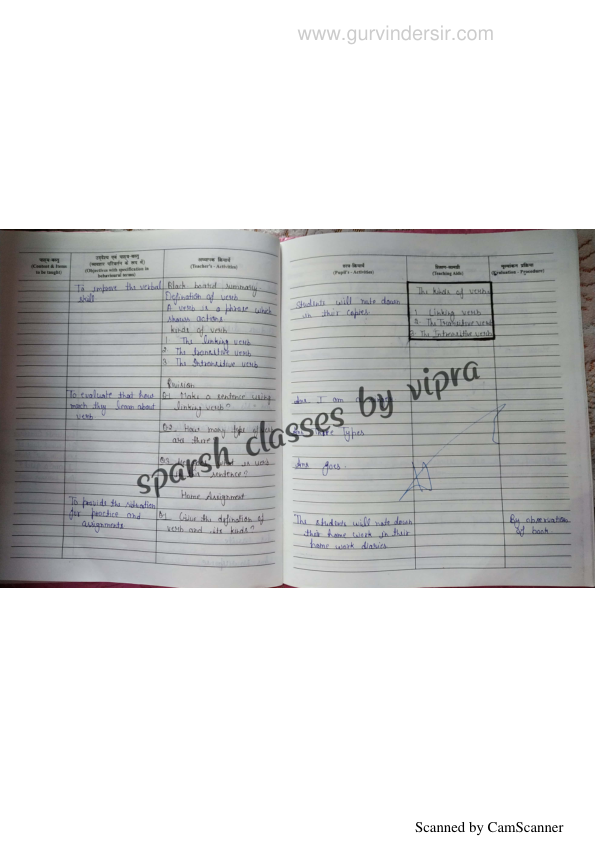 www.gurvindersir.com
पाठ्य-वस्तु
(Content & Items
to be taught)
उद्देश्य एवं पाठ्य-वस्तु
(व्यवहार परिवर्तन के रूप में)
(Objectives with specification in
behavioural terms)
अध्यापक क्रियायें
(Teacher's - Activities)
To improve the verbal
skill
Black board summary
Defination of verb
A verb is a phrase which
shows actions
kinds of verb
1 The linking verb
2 The transitive verb
3 The Intransitive verb
Revision
To evaluate that how
much they learn about
verb
Q1 Make a sentence using
linking verb?
Q2. How many type of
are there
in verb
sentence?
Home Assignment
To provide the
for practice and
assignments
Q1 Give the defination of
verb and its kinds?
छात्र-क्रियायें
(Pupil's - Activities)
शिक्षण-सामग्री
(Teaching Aids)
मूल्यांकन प्रक्रिया
(Evaluation - Procedure)
Students will note down
in their copies
The kinds of verb
1 Linking verb
2 The Transitive verb
3 The Intransitive verb
Ans I am a
Types
Ans goes.
The students will note down
their home work in their
home work diaries
By observation
of
sparsh classes by vipra
Scanned by CamScanner